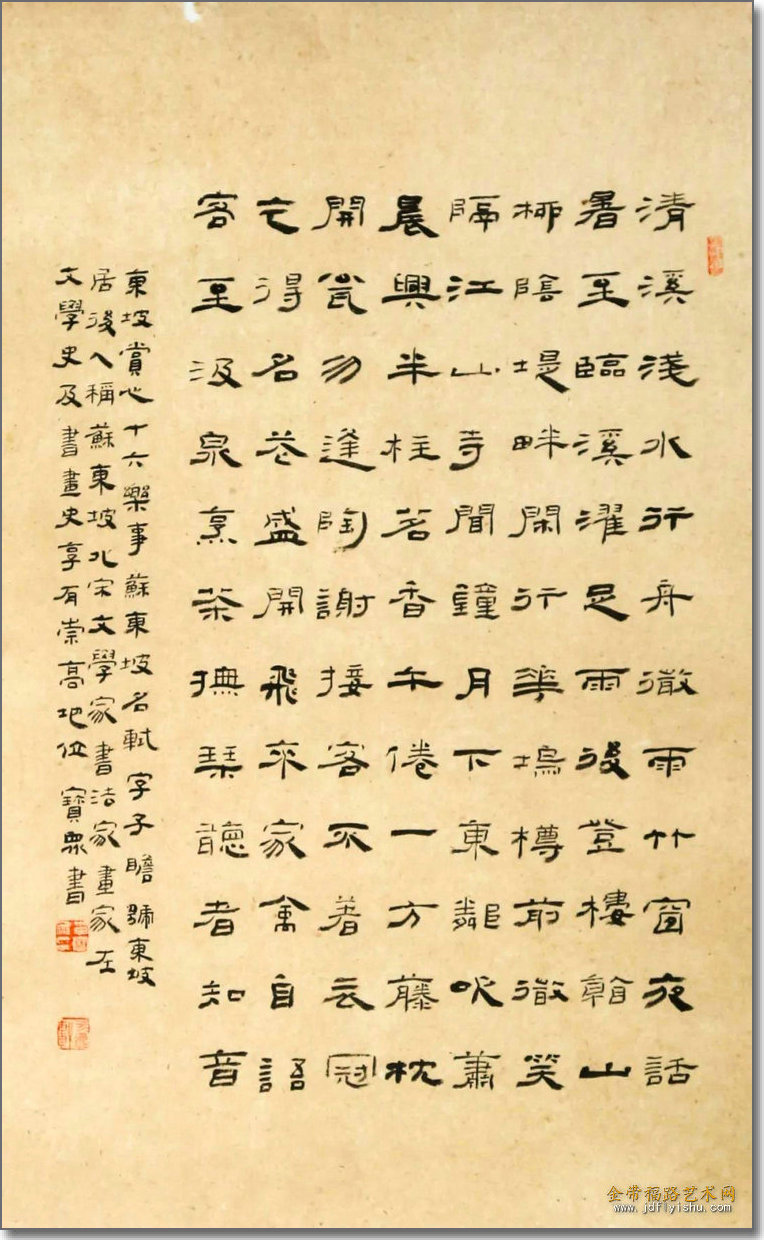 清溪淺水行舟微雨竹窗夜話
暑至臨溪濯足雨後登樓看山
柳陰堤畔閑行華塢樽前微笑
隔江山寺聞鐘月下東鄰吹蕭
晨興半柱茗香午倦一方藤枕
開瓮勿逢陶謝接客不著衣冠
乞得名花盛開飛來家禽自語
客至汲泉烹茶撫琴聽者知音
東坡賞心十六樂事蘇東坡名軾字子瞻號東坡
居後人稱蘇東坡北宋文學家書法家畫家在
文學史及書畫史享有崇高地位寶眾書
金带福路艺术网
www.jdflyishu.com